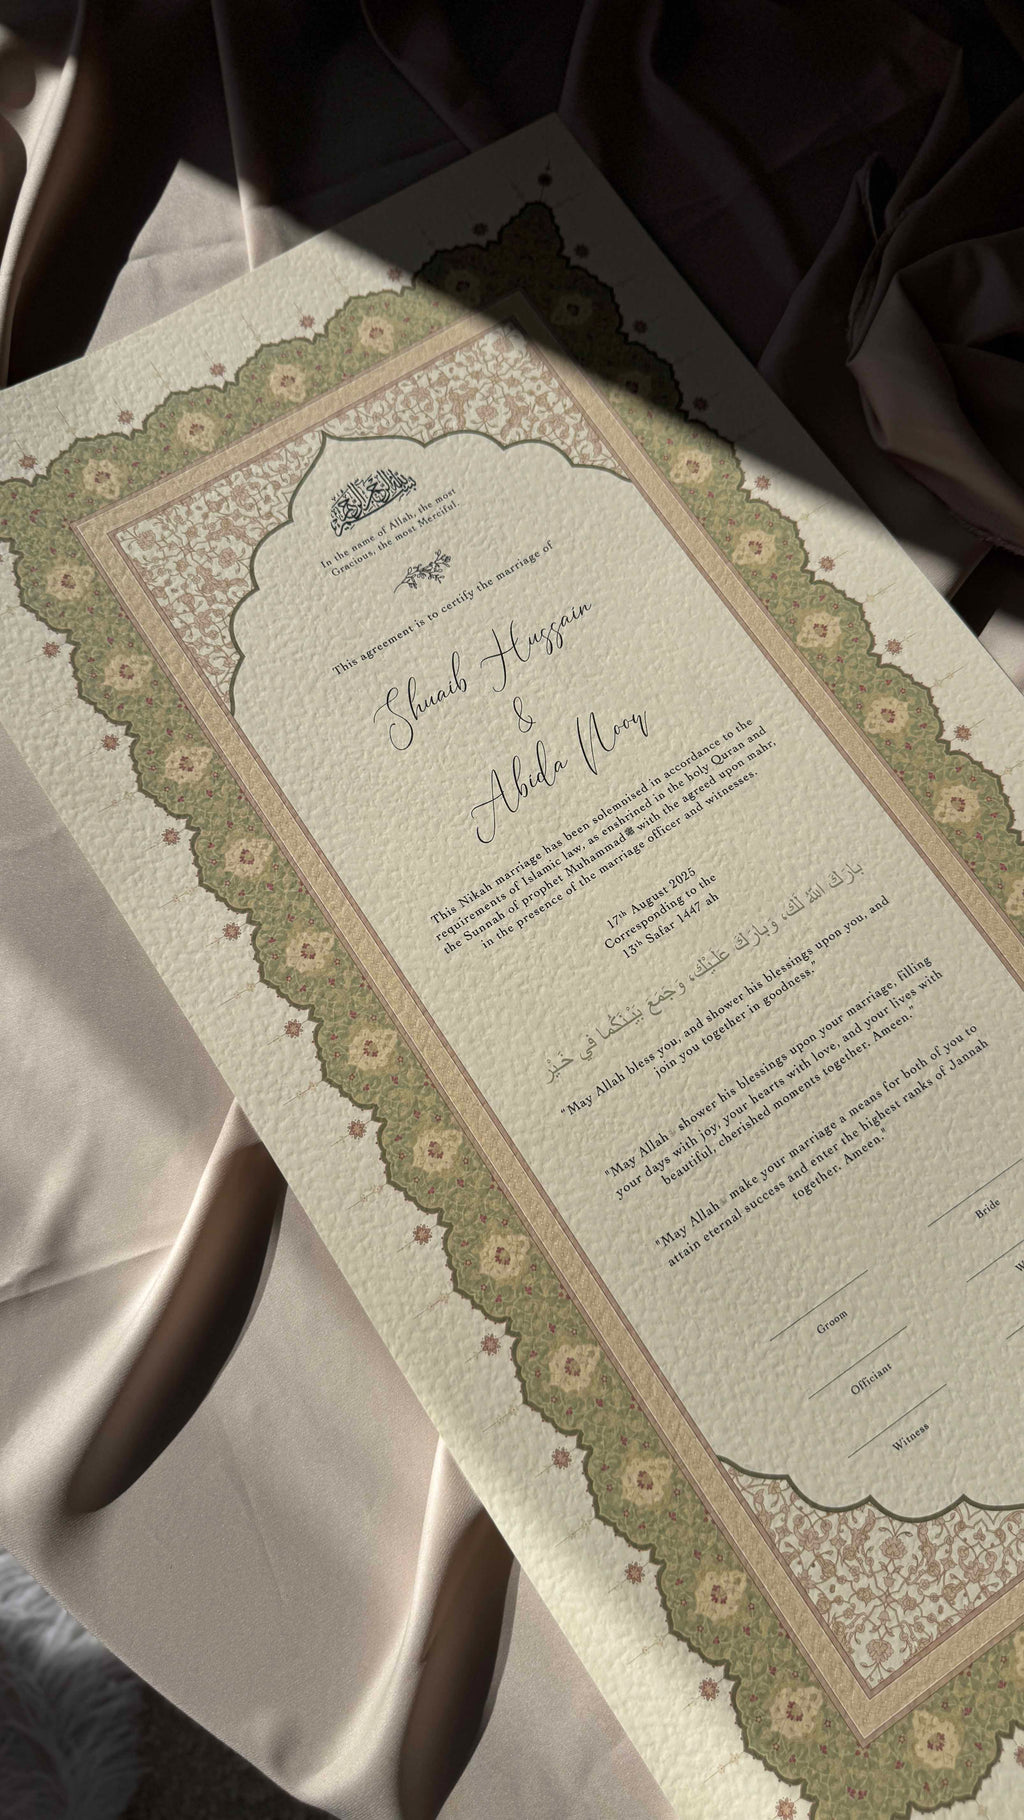 بسم الله الرحمن الرحيم
In the name of Allah, the most
Gracious, the most Merciful.
This agreement is to certify the marriage of
Shuaib Hussain
&
Abida Noor
This Nikah marriage has been solemnised in accordance to the
requirements of Islamic law, as enshrined in the holy Quran and
the Sunnah of prophet Muhammadﷺ with the agreed upon mahr,
in the presence of the marriage officer and witnesses.
17th August 2025
Corresponding to the
13th Safar 1447 ah
بارَكَ اللهُ لَكَ، وَبارَكَ عَلَيْكَ، وَجَمَعَ بَيْنَكُما في خَيْر
“May Allah bless you, and shower his blessings upon you, and
join you together in goodness.”
"May Allah shower his blessings upon your marriage, filling
your days with joy, your hearts with love, and your lives with
beautiful, cherished moments together. Ameen."
"May Allah make your marriage a means for both of you to
attain eternal success and enter the highest ranks of Jannah
together. Ameen."
Groom
Bride
Officiant
Witness